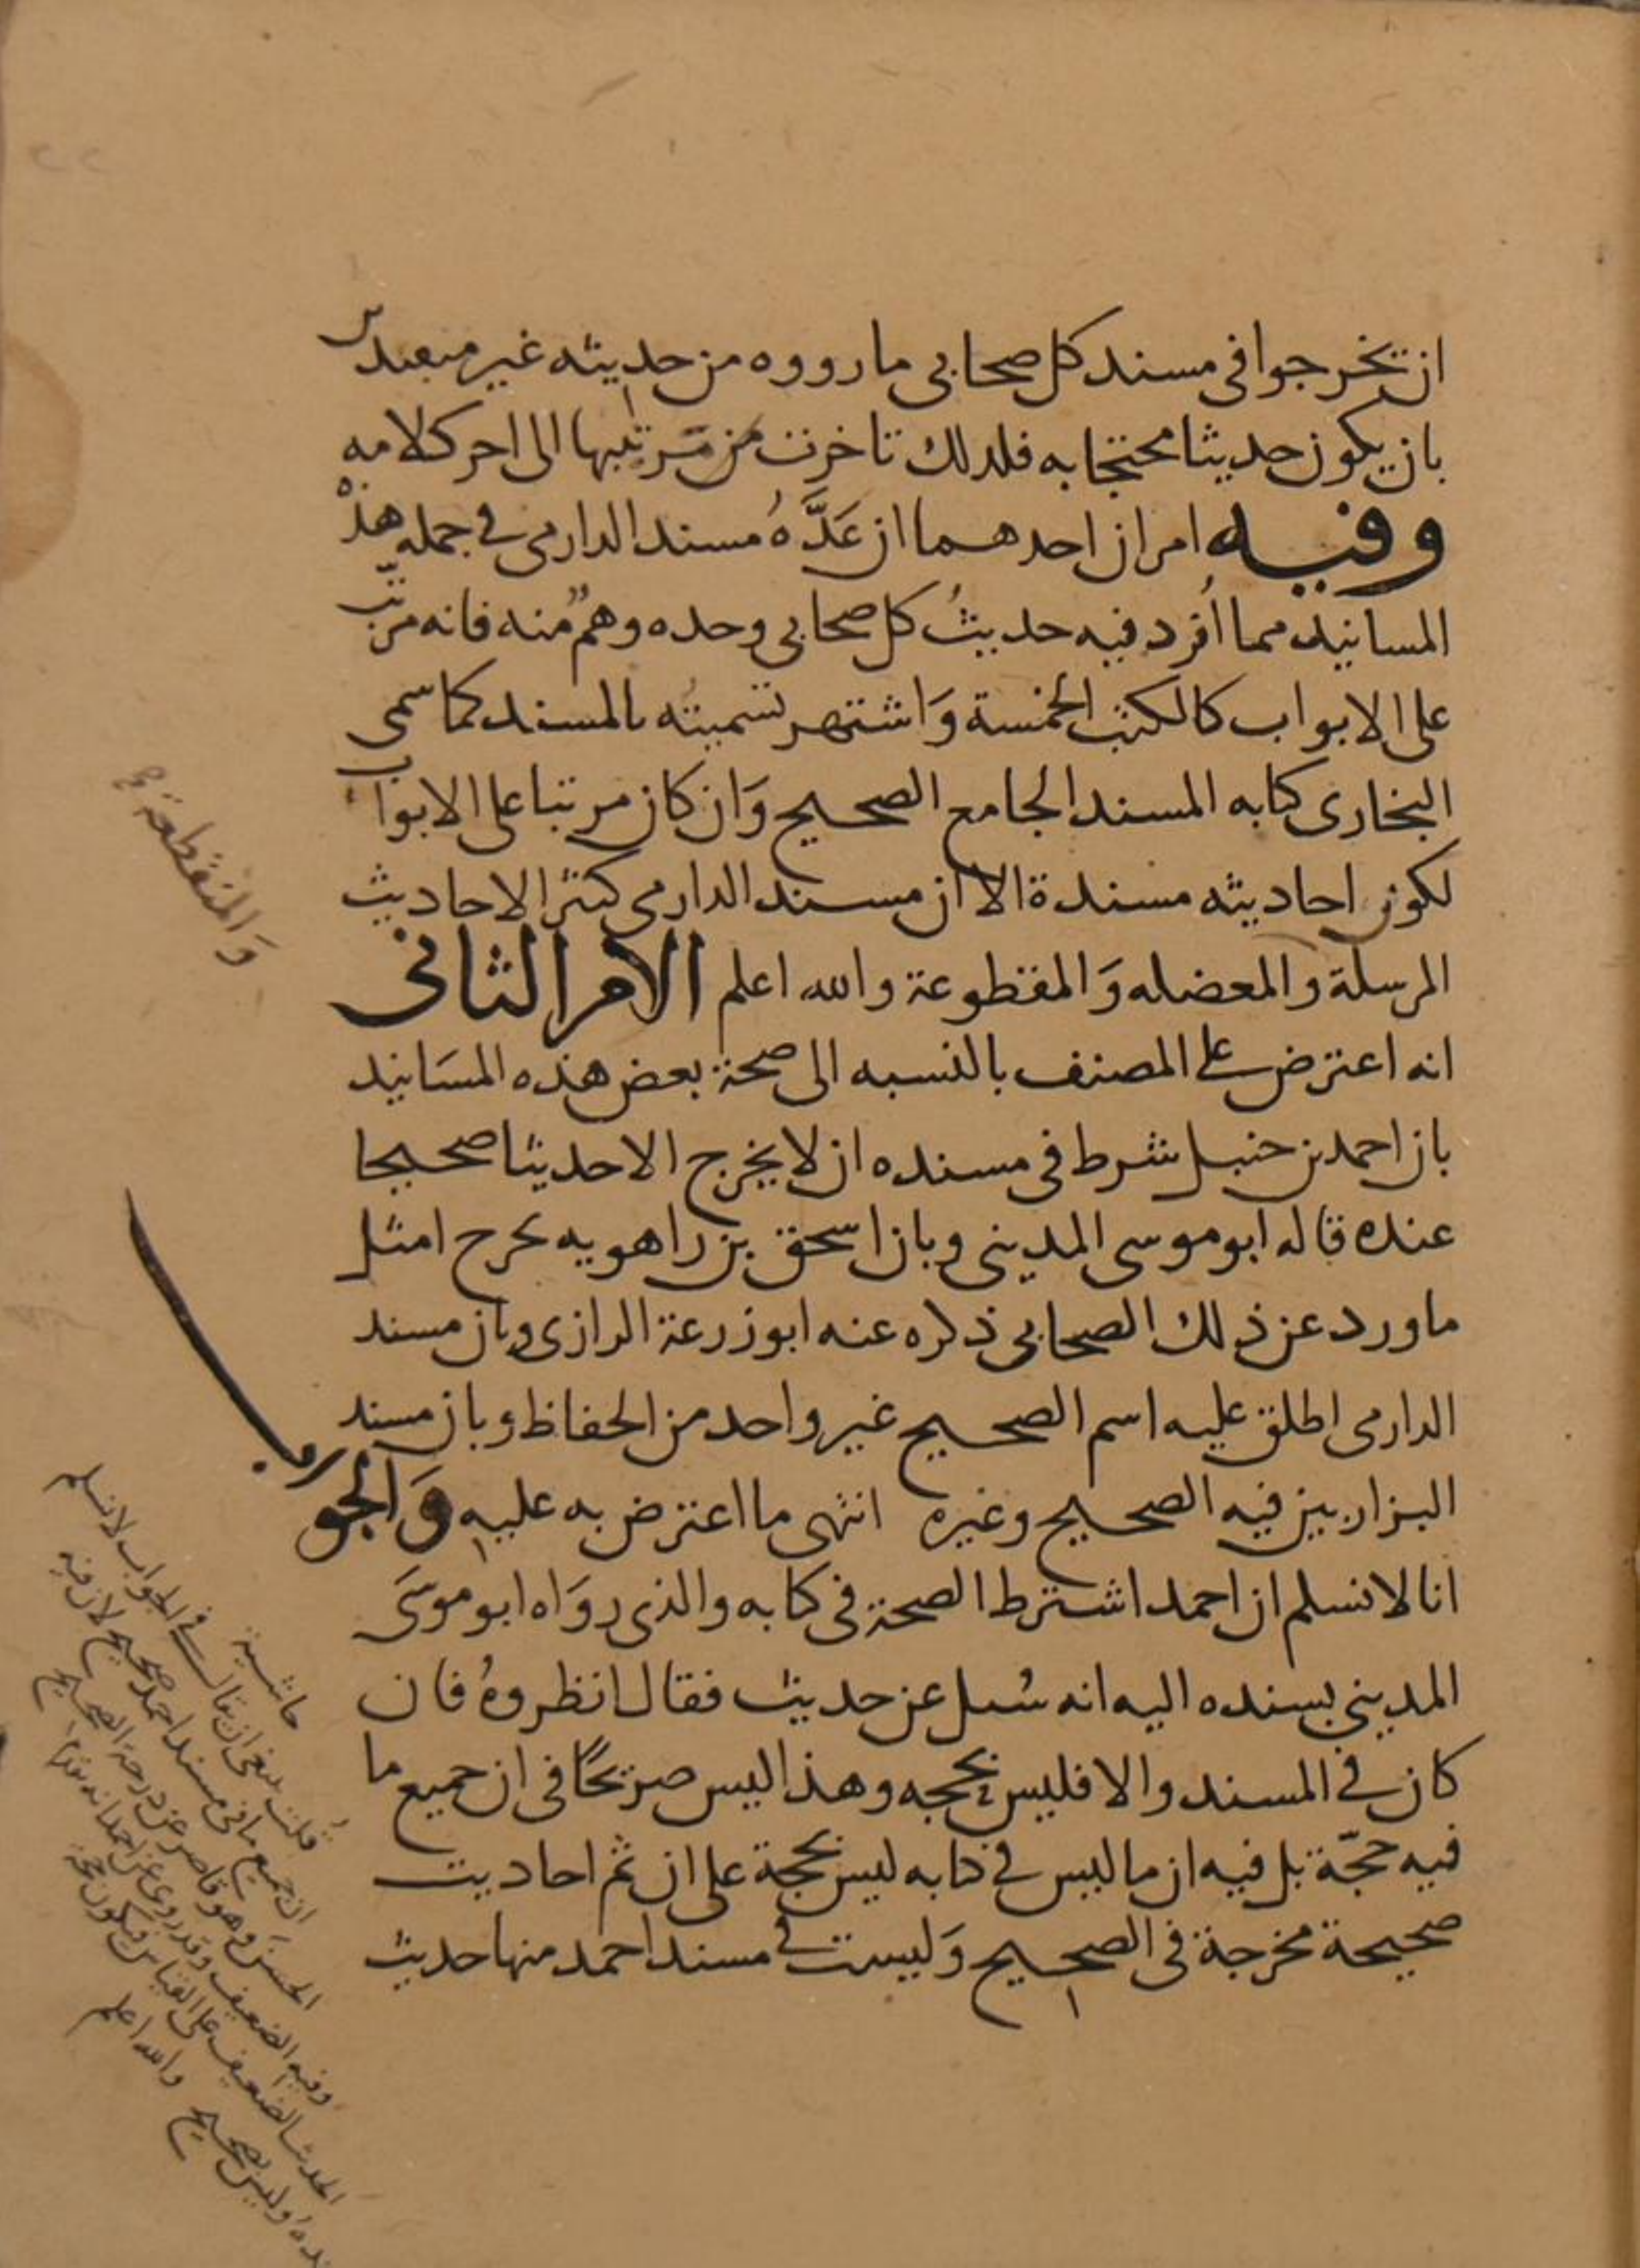 ان يخرجوا في مسند كل صحابي ما رووه من حديثه غير متعبدين
بان يكون حديثا محتجا به فلذلك تاخرت من مرتبتها الى اخر كلامه
وفيه امران احدهما ان عَدَّهُ مسند الدارمي في جمله هذه
المسانيد مما اُفرد فيه حديثُ كل صحابي وحده وهمٌ منه فانه مرتب
على الابواب كالكتب الخمسة وَاشتهر تسميتُه بالمسند كما سمى
البخارى كتابه المسند الجامع الصحيح وَان كان مرتبا على الابواب
لكون احاديثه مسندة الا ان مسند الدارمي كثير الاحاديث
المرسلة والمعضله وَالمقطوعة والله اعلم الامر الثاني
انه اعترض على المصنف بالنسبه الى صحة بعض هذه المسَانيد
بان احمد بن حنبل شرط في مسنده ان لا يخرج الا حديثا صحيحا
عنده قاله ابو موسى المديني وبان اسحق بن راهويه يخرج امثل
ما ورد عن ذلك الصحابي ذكره عنه ابو زرعة الرازى وبان مسند
الدارمى اطلق عليه اسم الصحيح غير واحد من الحفاظ وبان مسند
البزار بين فيه الصحيح وغيره انتهى ما اعترض به عليه وَالجواب
انا لا نسلم ان احمد اشترط الصحة في كتابه والذى روَاه ابو موسَى
المديني بسنده اليه انه سُىل عن حديث فقال انظروهُ فان
كان في المسند والا فليس بحجه وهذا ليس صريحًا في ان جميع ما
فيه حجّة بل فيه ان ما ليس في كتابه ليس بحجة على ان ثم احاديث
صحيحة مخرجة في الصحيح وَليست في مسند احمد منها حديث
وَالمنقطعة
حاشية
قُلت ينبغي ان يقال في الجواب لا نسلم
ان جميع ما في مسند احمد صحيح لان فيه
الحسَن وهو قاصر عن درجة الصحيح
وفيه الضعيف وقد روى عن احمد انه يقدم
الحديث الضعيف على القياس فيكون حجة
عندهُ وليس بصحيح والله اعلم